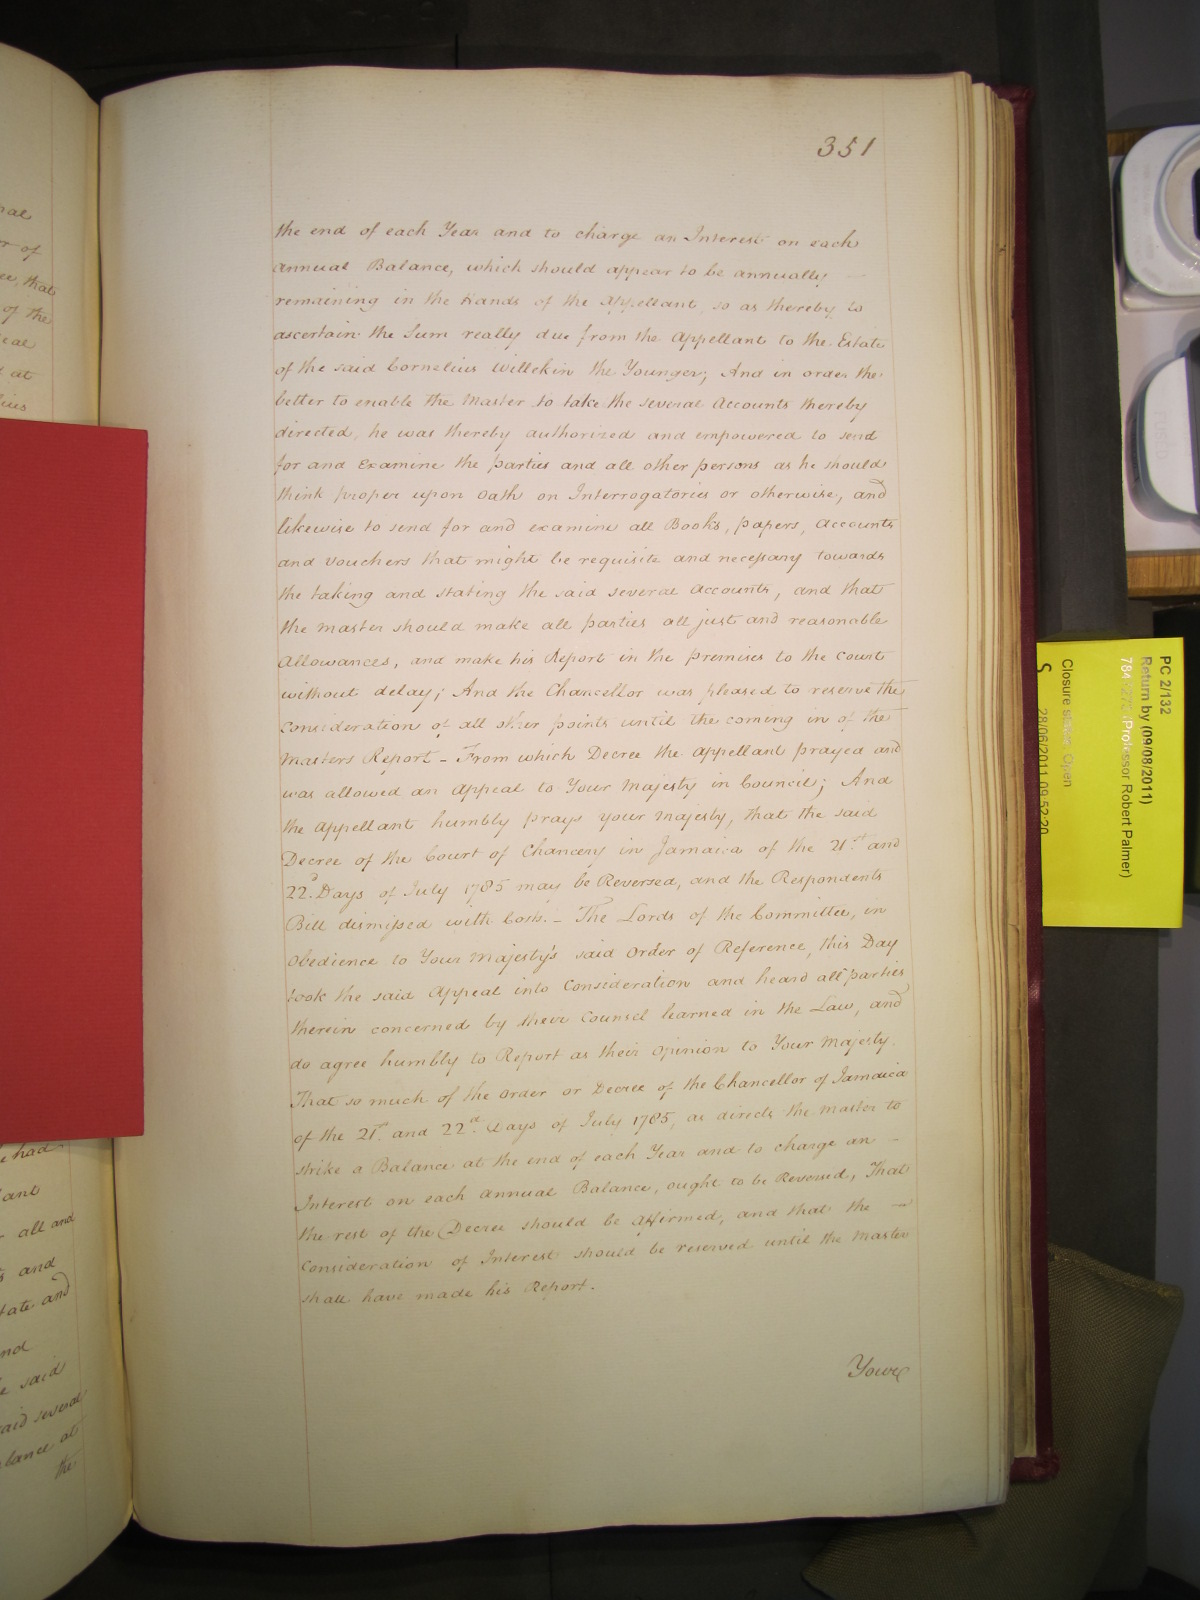 351
the end of each Year and to charge an Interest on each
annual Balance, which should appear to be annually
remaining in the Hands of the Appellant, so as thereby to
ascertain the Sum really due from the Appellant to the Estate
of the said Cornelius Willekin the Younger; And in order the
better to enable the Master to take the several Accounts thereby
directed, he was thereby authorized and empowered to send
for and Examine the parties and all other persons as he should
think proper upon Oath on Interrogatories or otherwise, and
likewise to send for and examine all Books, papers, Accounts
and Vouchers that might be requisite and necessary towards
the taking and stating the said several Accounts, and that
the Master should make all parties all just and reasonable
Allowances, and make his Report in the premises to the Court
without delay; And the Chancellor was pleased to reserve the
Consideration of all other points until the coming in of the
Masters Report - From which Decree the Appellant prayed and
was allowed an Appeal to Your Majesty in Council; And
the Appellant humbly prays your Majesty, that the said
Decree of the Court of Chancery in Jamaica of the 21st and
22d Days of July 1785 may be Reversed, and the Respondents
Bill dismissed with Costs. - The Lords of the Committee, in
Obedience to Your Majesty's said Order of Reference, this Day
took the said Appeal into Consideration and heard all parties
therein concerned by their Counsel learned in the Law, and
do agree humbly to Report as their Opinion to Your Majesty.
That so much of the Order or Decree of the Chancellor of Jamaica
of the 21st and 22d Days of July 1785, as directs the Master to
strike a Balance at the end of each Year and to charge an -
Interest on each annual Balance, ought to be Reversed, That
the rest of the Decree should be Affirmed, and that the -
Consideration of Interest should be reserved until the Master
shall have made his Report.
Your
nal
or of
ee, that
of the
at
e had
ant
all and
and
tate and
nd
e said
aid several
lance at
the
PC 2/132
Return by (09/08/2011)
Professor Robert Palmer)
Closure status: Open
28/06/2011 09:52:20
S